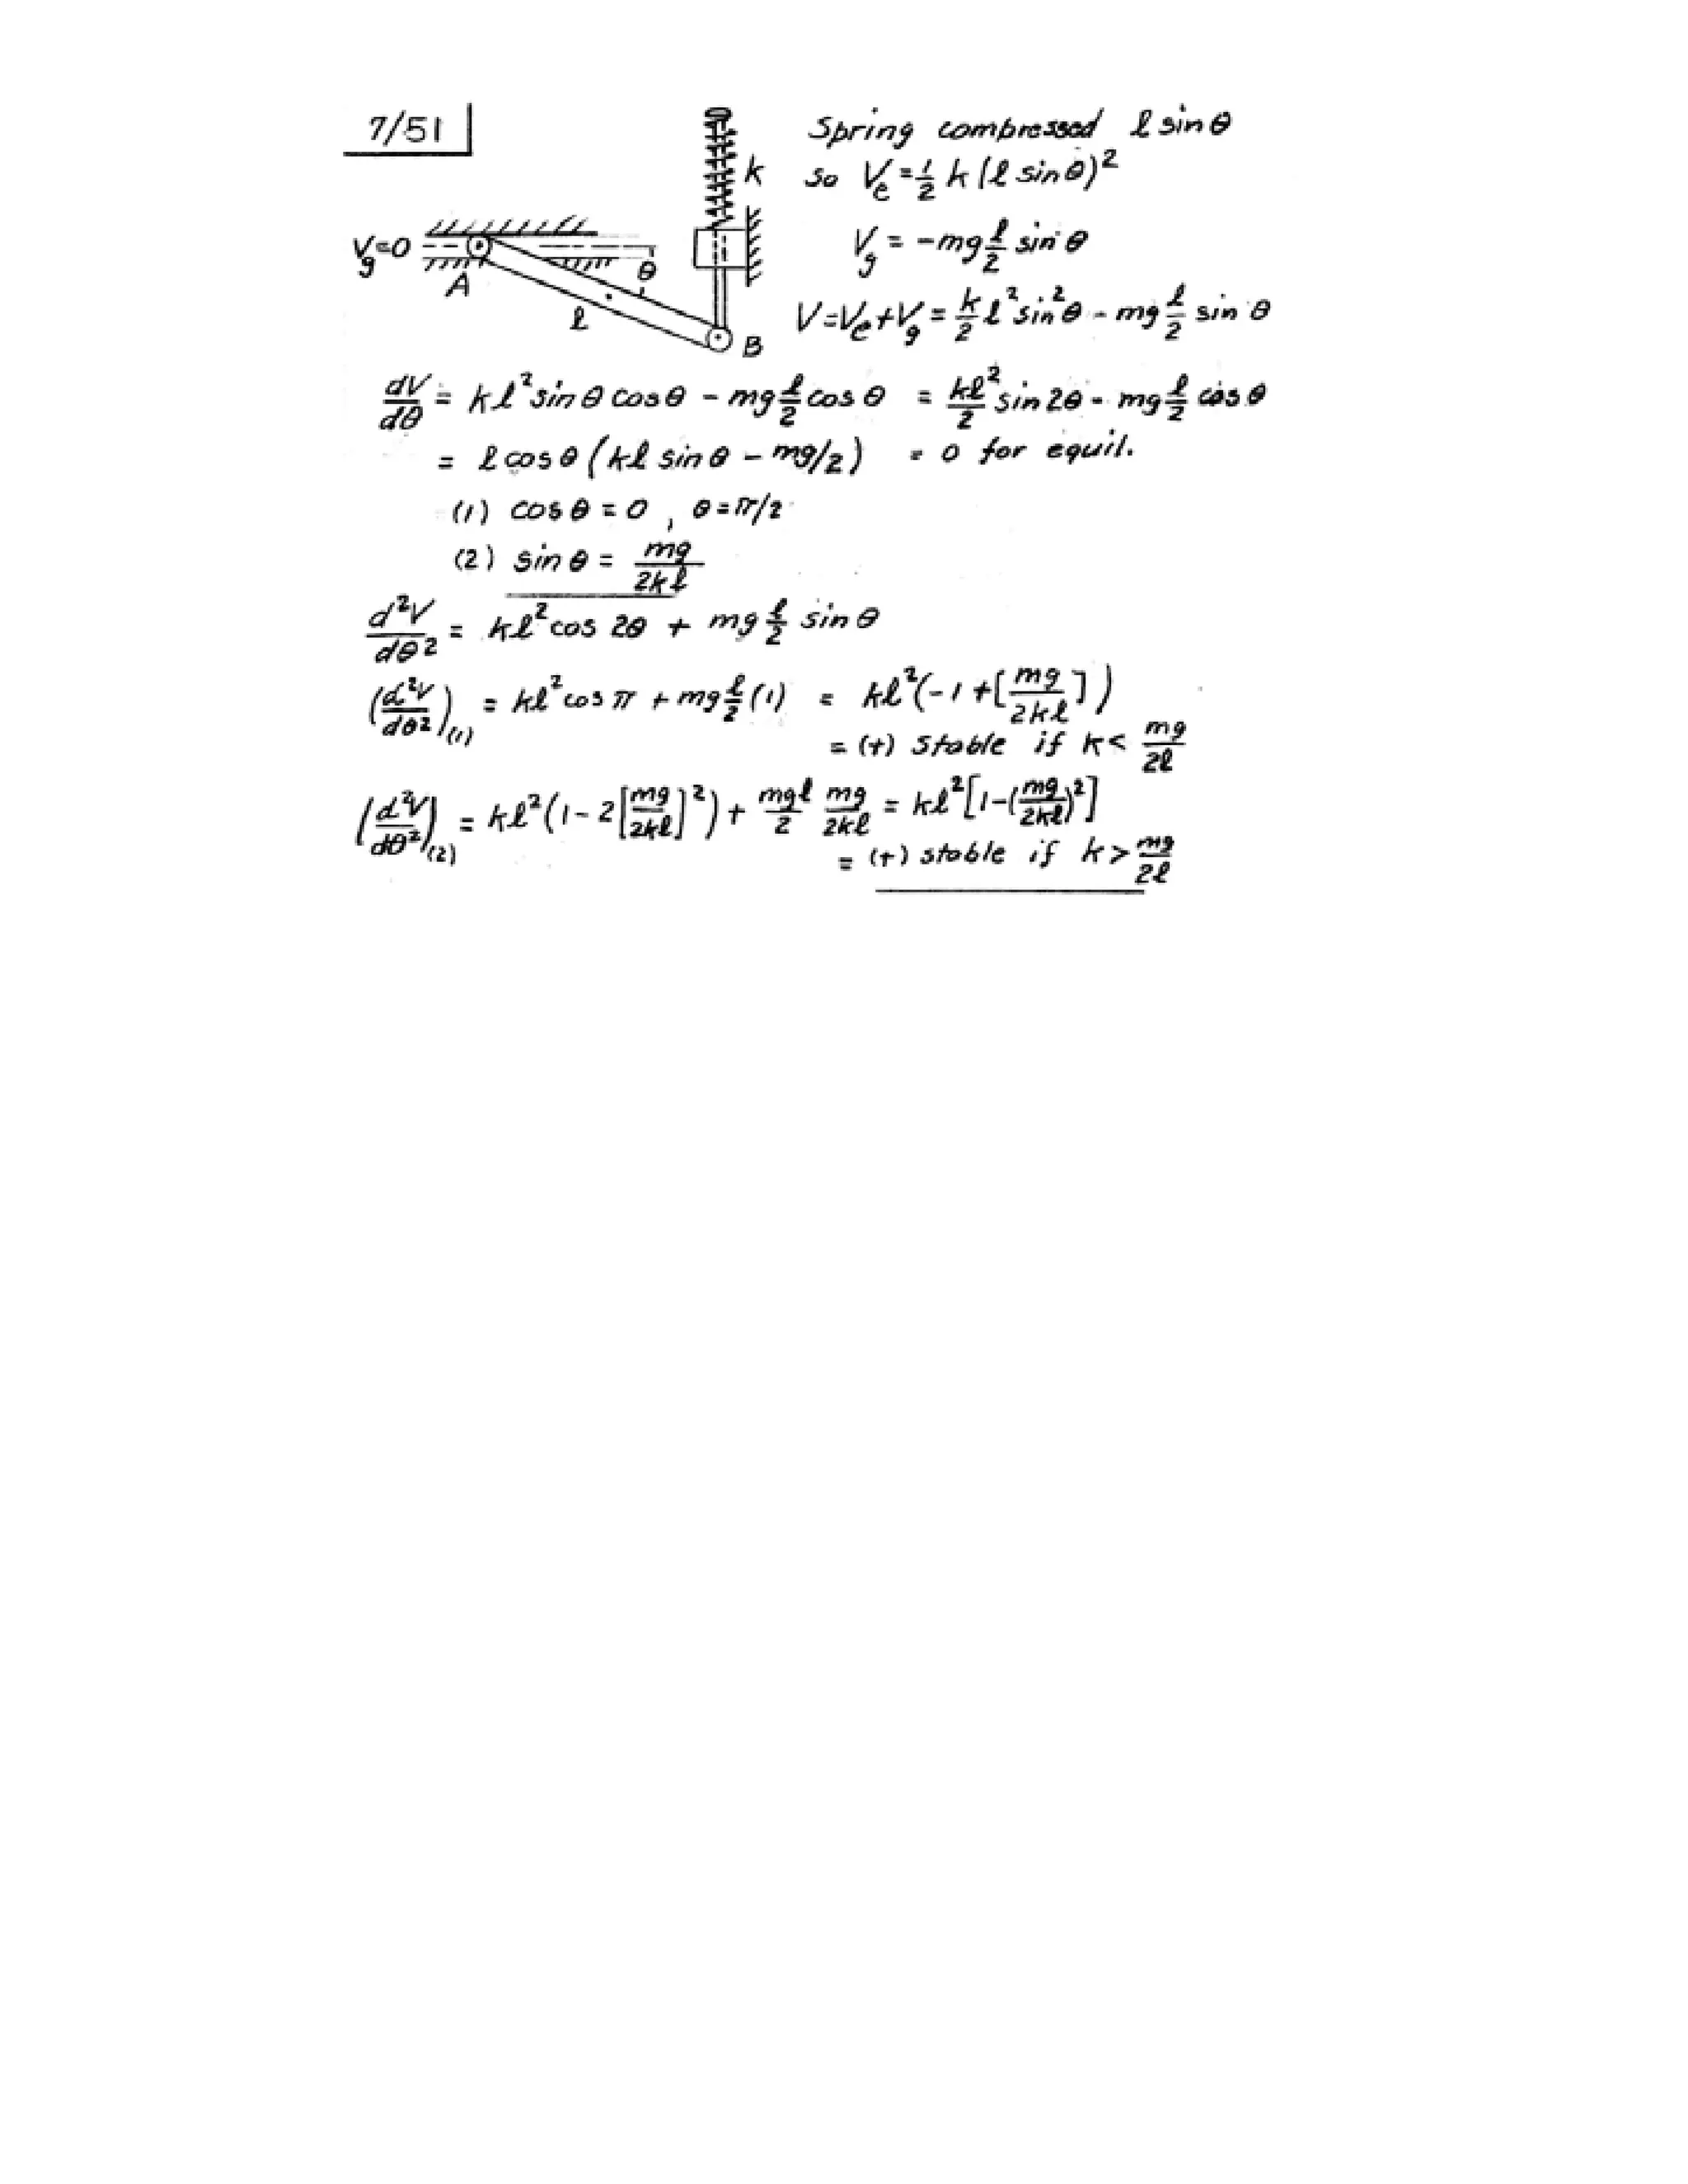 7/51
Spring compressed l sin θ
k
so Vₑ = 1/2 k (l sin θ)²
V_g = 0
θ
A
l
B
V_g = -mg l/2 sin θ
V = Vₑ + V_g = k/2 l² sin² θ - mg l/2 sin θ
dV/dθ = kl² sin θ cos θ - mg l/2 cos θ = kl²/2 sin 2θ - mg l/2 cos θ
= l cos θ (kl sin θ - mg/2) = 0 for equil.
(1) cos θ = 0, θ = π/2
(2) sin θ = mg/2kl
d²V/dθ² = kl² cos 2θ + mg l/2 sin θ
(d²V/dθ²)₍₁₎ = kl² cos π + mg l/2 (1) = kl² (-1 + [mg/2kl])
= (+) stable if k < mg/2l
(d²V/dθ²)₍₂₎ = kl² (1 - 2[mg/2kl]²) + mgl/2 mg/2kl = kl² [1 - (mg/2kl)²]
= (+) stable if k > mg/2l